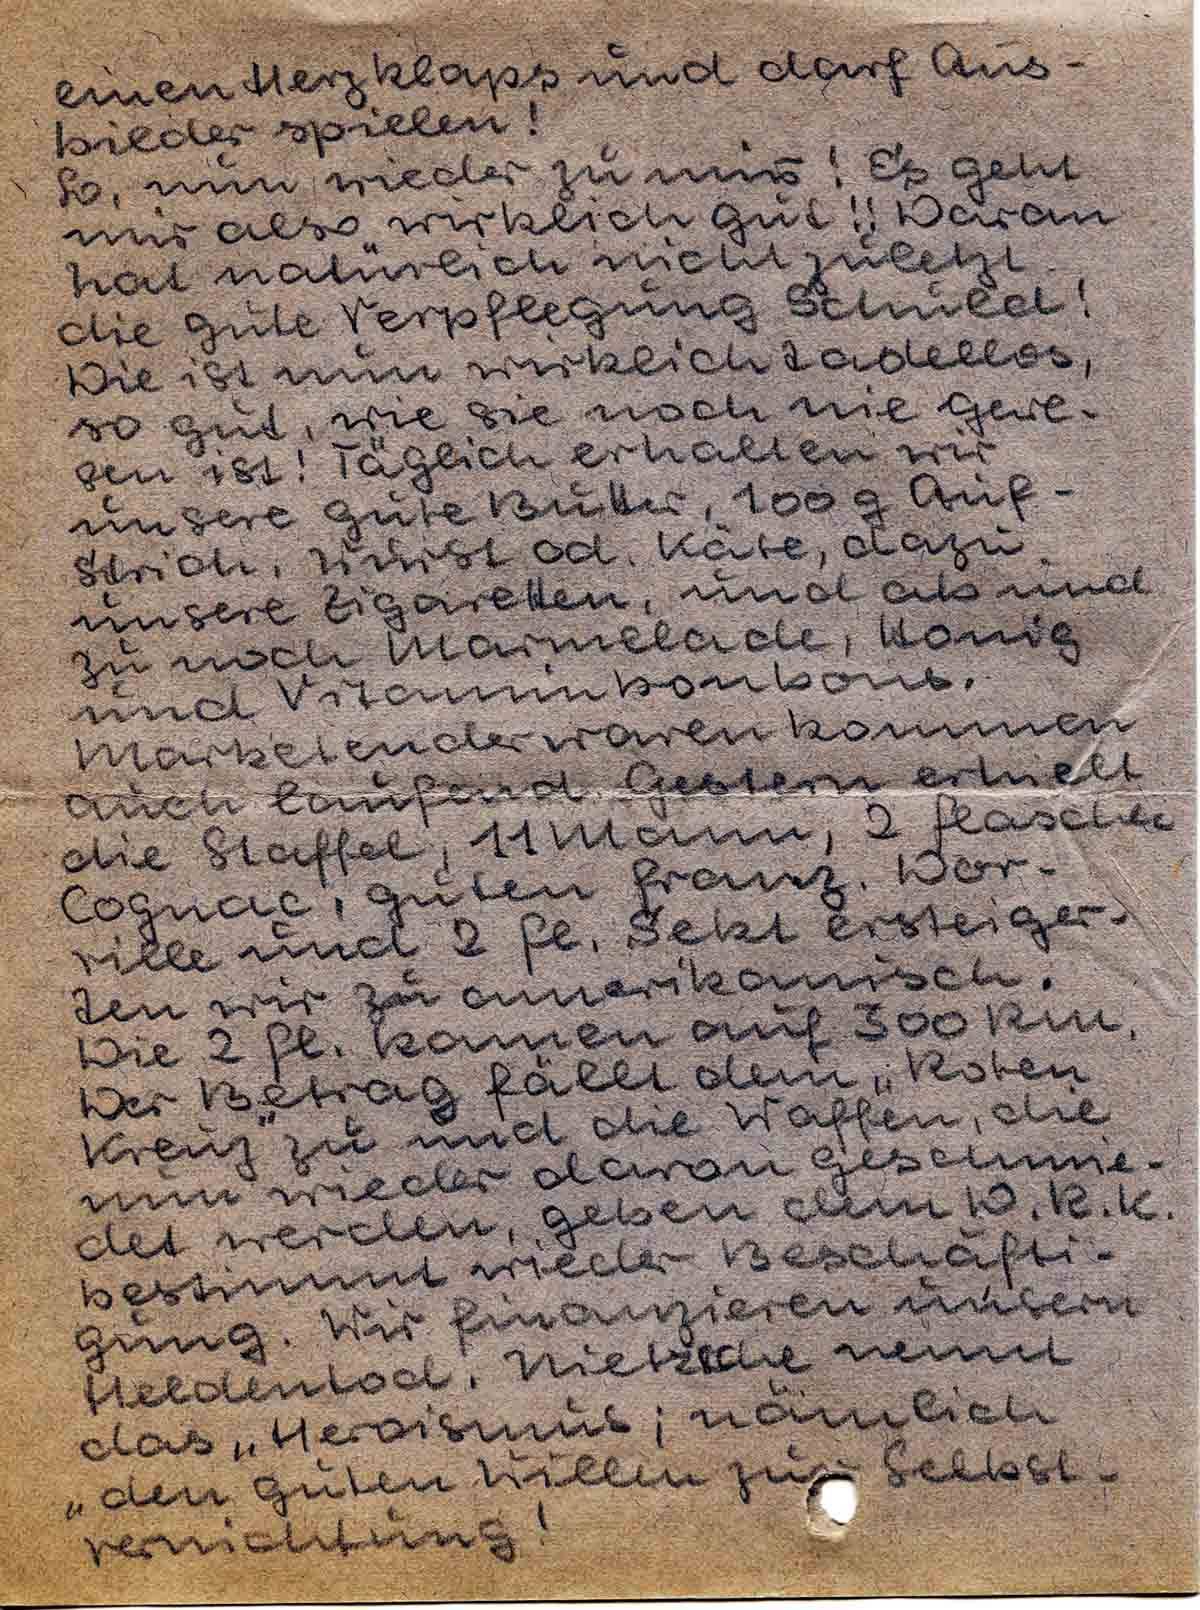 einen Herzklaps und darf Aus-
bilder spielen!
So, nun wieder zu mir! Es geht
mir also wirklich gut!! Daran
hat natürlich nicht zuletzt
die gute Verpflegung Schuld!
Die ist nun wirklich tadellos,
so gut, wie sie noch nie gewe-
sen ist! Täglich erhalten wir
unsere gute Butter, 100 g Auf-
strich, Wurst od. Käse, dazu
unsere Zigaretten, und ab und
zu noch Marmelade, Honig
und Vitaminbonbons.
Marketenderwaren kommen
auch laufend. Gestern erhielt
die Staffel, 11 Mann, 2 Flaschen
Cognac, guten franz. Dor-
ville und 2 Fl. Sekt ersteiger-
ten wir zu amerikanisch.
Die 2 Fl. kamen auf 300 Rm.
Der Betrag fällt dem „Roten
Kreuz" zu und die Waffen, die
nun wieder davon geschmie-
det werden, geben dem D.R.K.
bestimmt wieder Beschäfti-
gung. Wir finanzieren unsern
Heldentod. Nietzsche nennt
das „Heroismus; nämlich
„den guten Willen zur Selbst-
vernichtung!